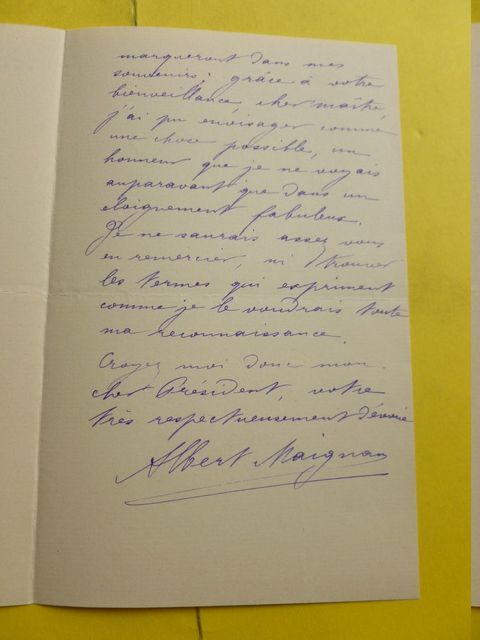 marqueront dans mes
souvenirs; grâce à votre
bienveillance, cher maître,
j'ai pu envisager comme
une chose possible, un
honneur que je ne voyais
auparavant que dans un
eloignement fabuleux.
Je ne saurais assez vous
en remercier, ni trouver
les termes qui expriment
comme je le voudrais toute
ma reconnaissance.
Croyez moi donc mon
cher Président, votre
très respectueusement dévoué
Albert Maignan